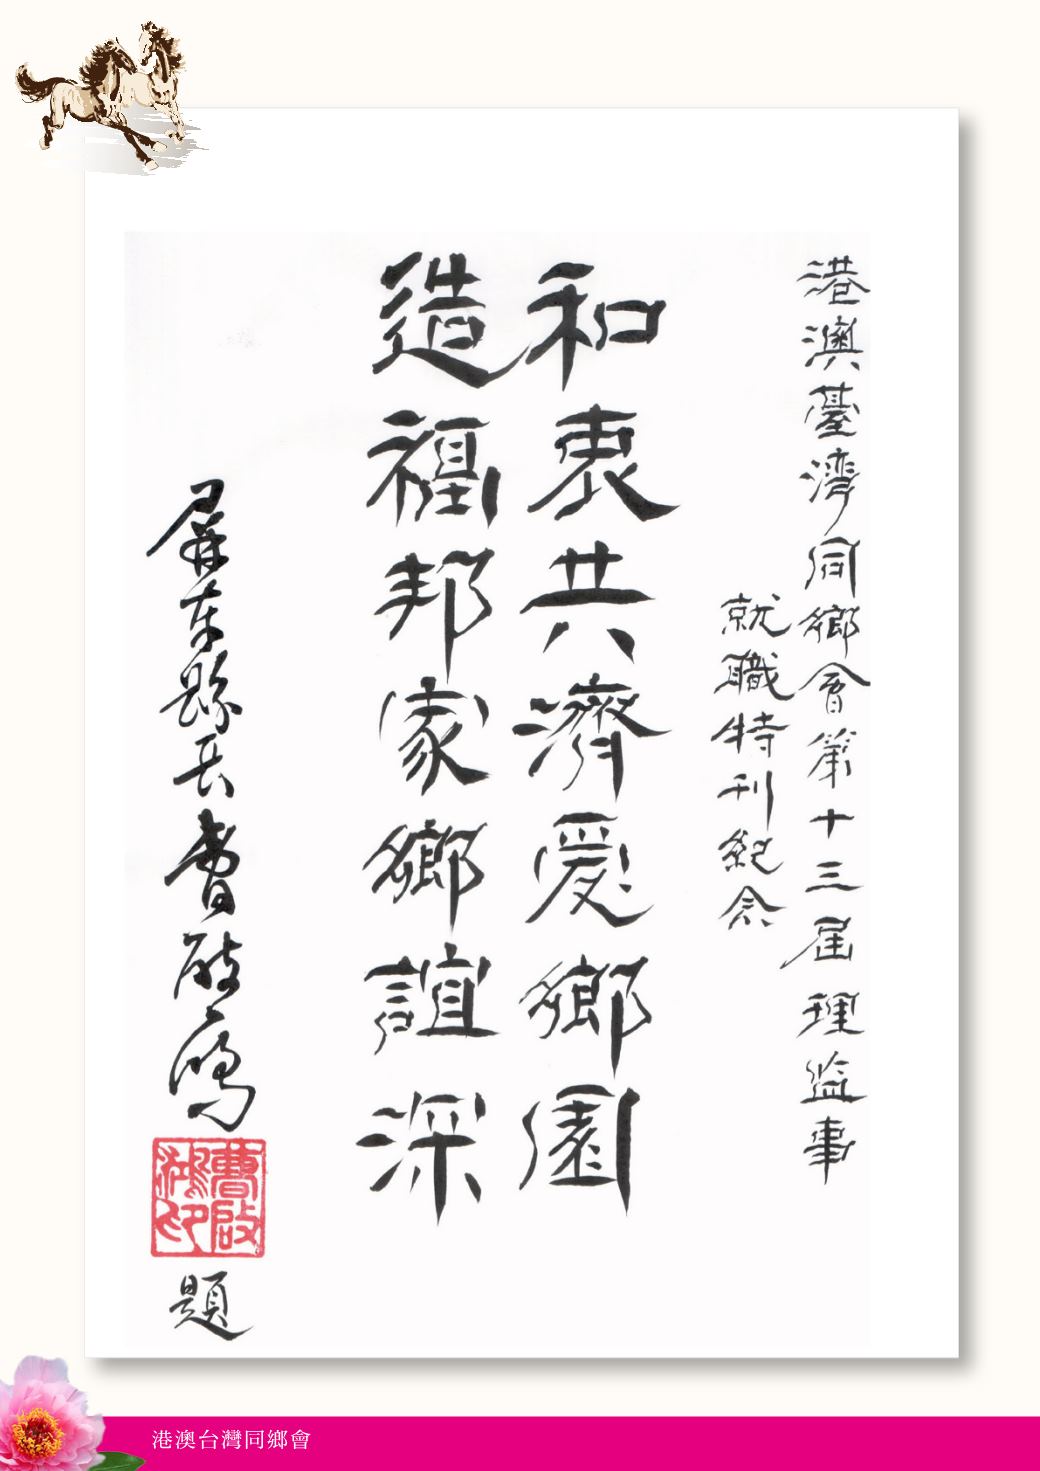 港澳臺灣同鄉會第十三屆理監事
就職特刊紀念
和衷共濟愛鄉園
造福邦家鄉誼深
屏東縣長曹啟鴻
曹啟鴻印
題
港澳台灣同鄉會